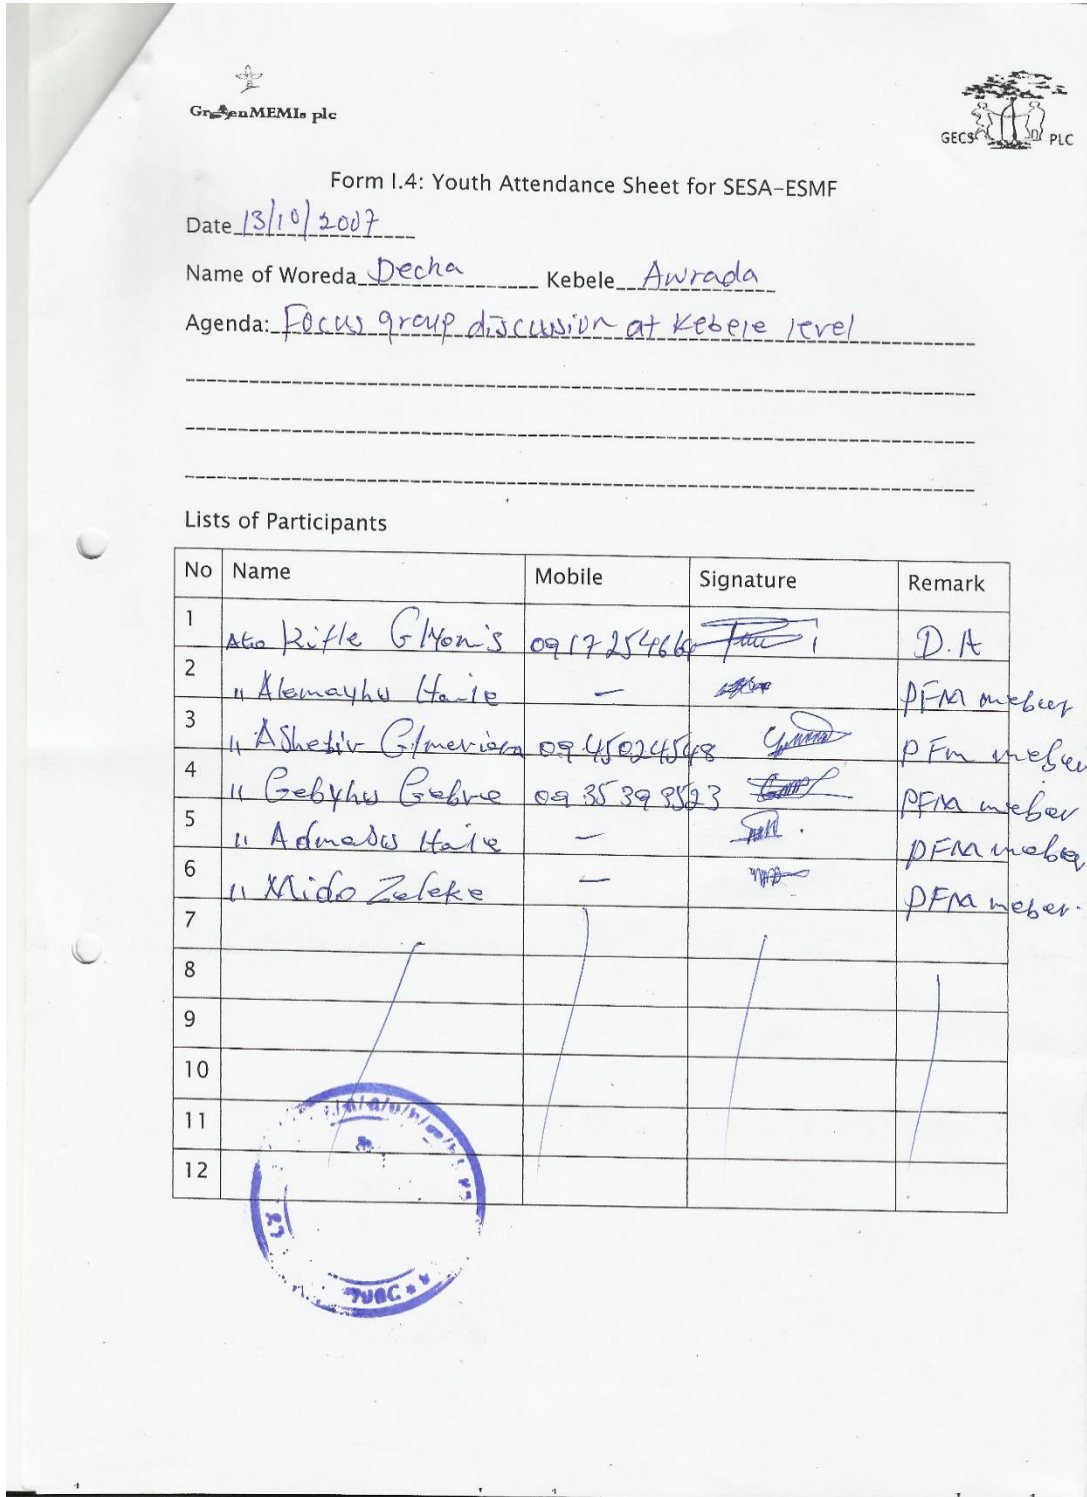 GreenMEMIs plc
GECS PLC
Form I.4: Youth Attendance Sheet for SESA-ESMF
Date 13/10/2007
Name of Woreda Decha Kebele Awrada
Agenda: Focus group discussion at Kebele level
Lists of Participants
No Name Mobile Signature Remark
1 Ato Kifle G/Yonis D.A
2 " Alemayhu Haile — PFM meber
3 " Ashebir G/meriam 0945024548 PFm meber
4 " Gebyhu Gebre 0935393523 PFM meber
5 " Admasu Haile — PFM meber
6 " Mido Zeleke — PFM meber.
7
8
9
10
11
12